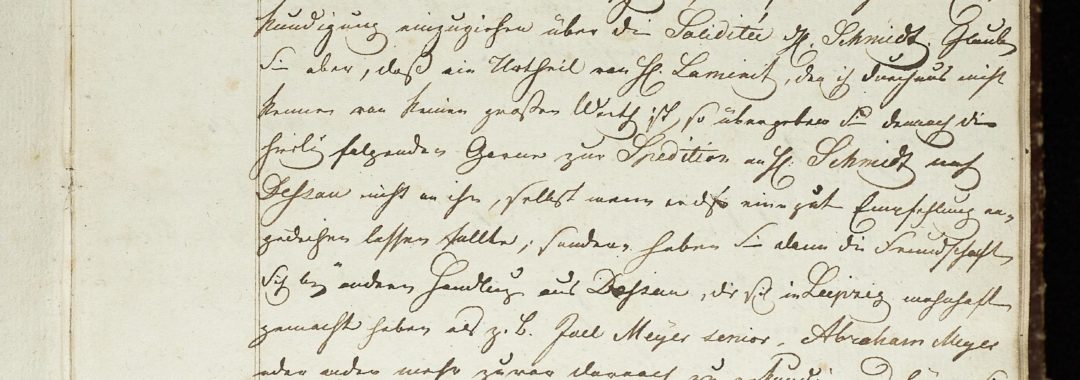 kundigung einzuziehen über die Soliditée H. Schmidt. Glauben
Sie aber, daß ein Urtheil von H. Laminit, den ich durchaus nicht
kennen von keinen großen Werth ist, so übergeben Sie demnach die
hierbey folgenden Garne zur Spedition an H. Schmidt nach
Dessau nicht an ihn, selbst wenn er eine gute Empfehlung an-
gedeihen lassen sollte, sondern haben Sie dann die Freundschaft
sich bey andern Handlung aus Dessau, die sich in Leipzig wohnhaft
gemacht haben als z. B. Joel Meyer senior, Abraham Meyer
oder andre mehr zuvor darnach zu